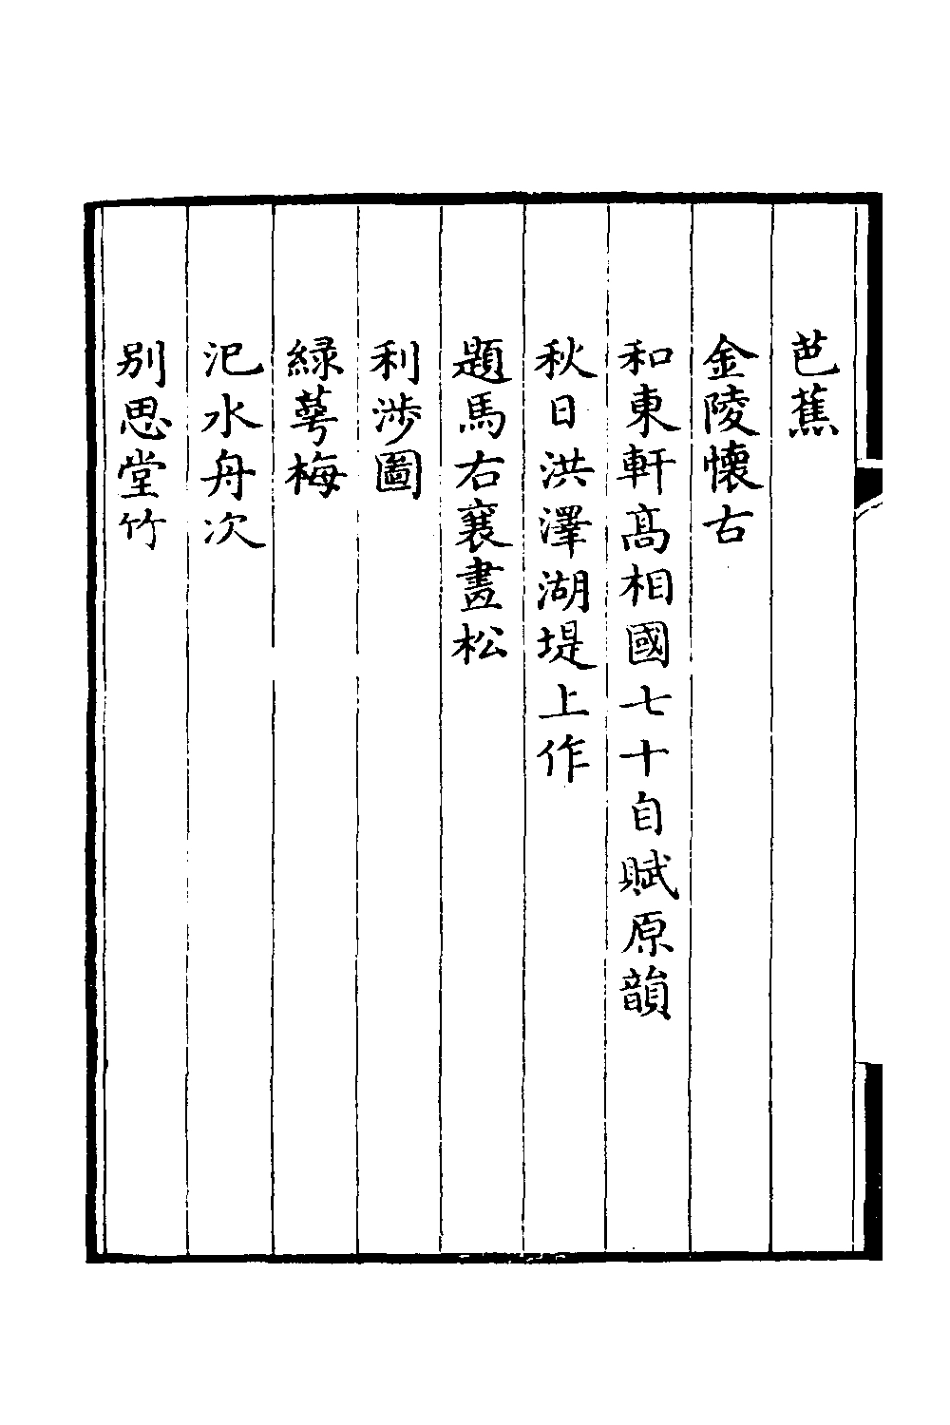 芭蕉
金陵懷古
和東軒髙相國七十自賦原韻
秋日洪澤湖堤上作
題馬右襄畫松
利涉圖
緑萼梅
汜水舟次
别思堂竹